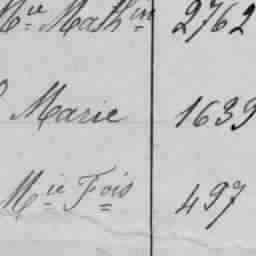 Mie Mathin 2762
Marie 1639
Mie Fois 497